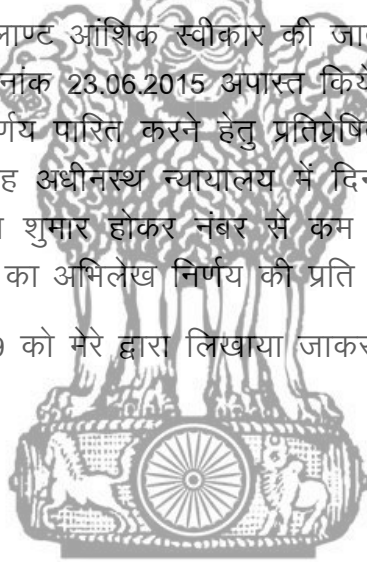 लाण्ट आंशिक स्वीकार की जा
नांक 23.06.2015 अपास्त किये
र्णय पारित करने हेतु प्रतिप्रेषि
ह अधीनस्थ न्यायालय में दिन
शुमार होकर नंबर से कम
का अभिलेख निर्णय की प्रति
को मेरे द्वारा लिखाया जाकर